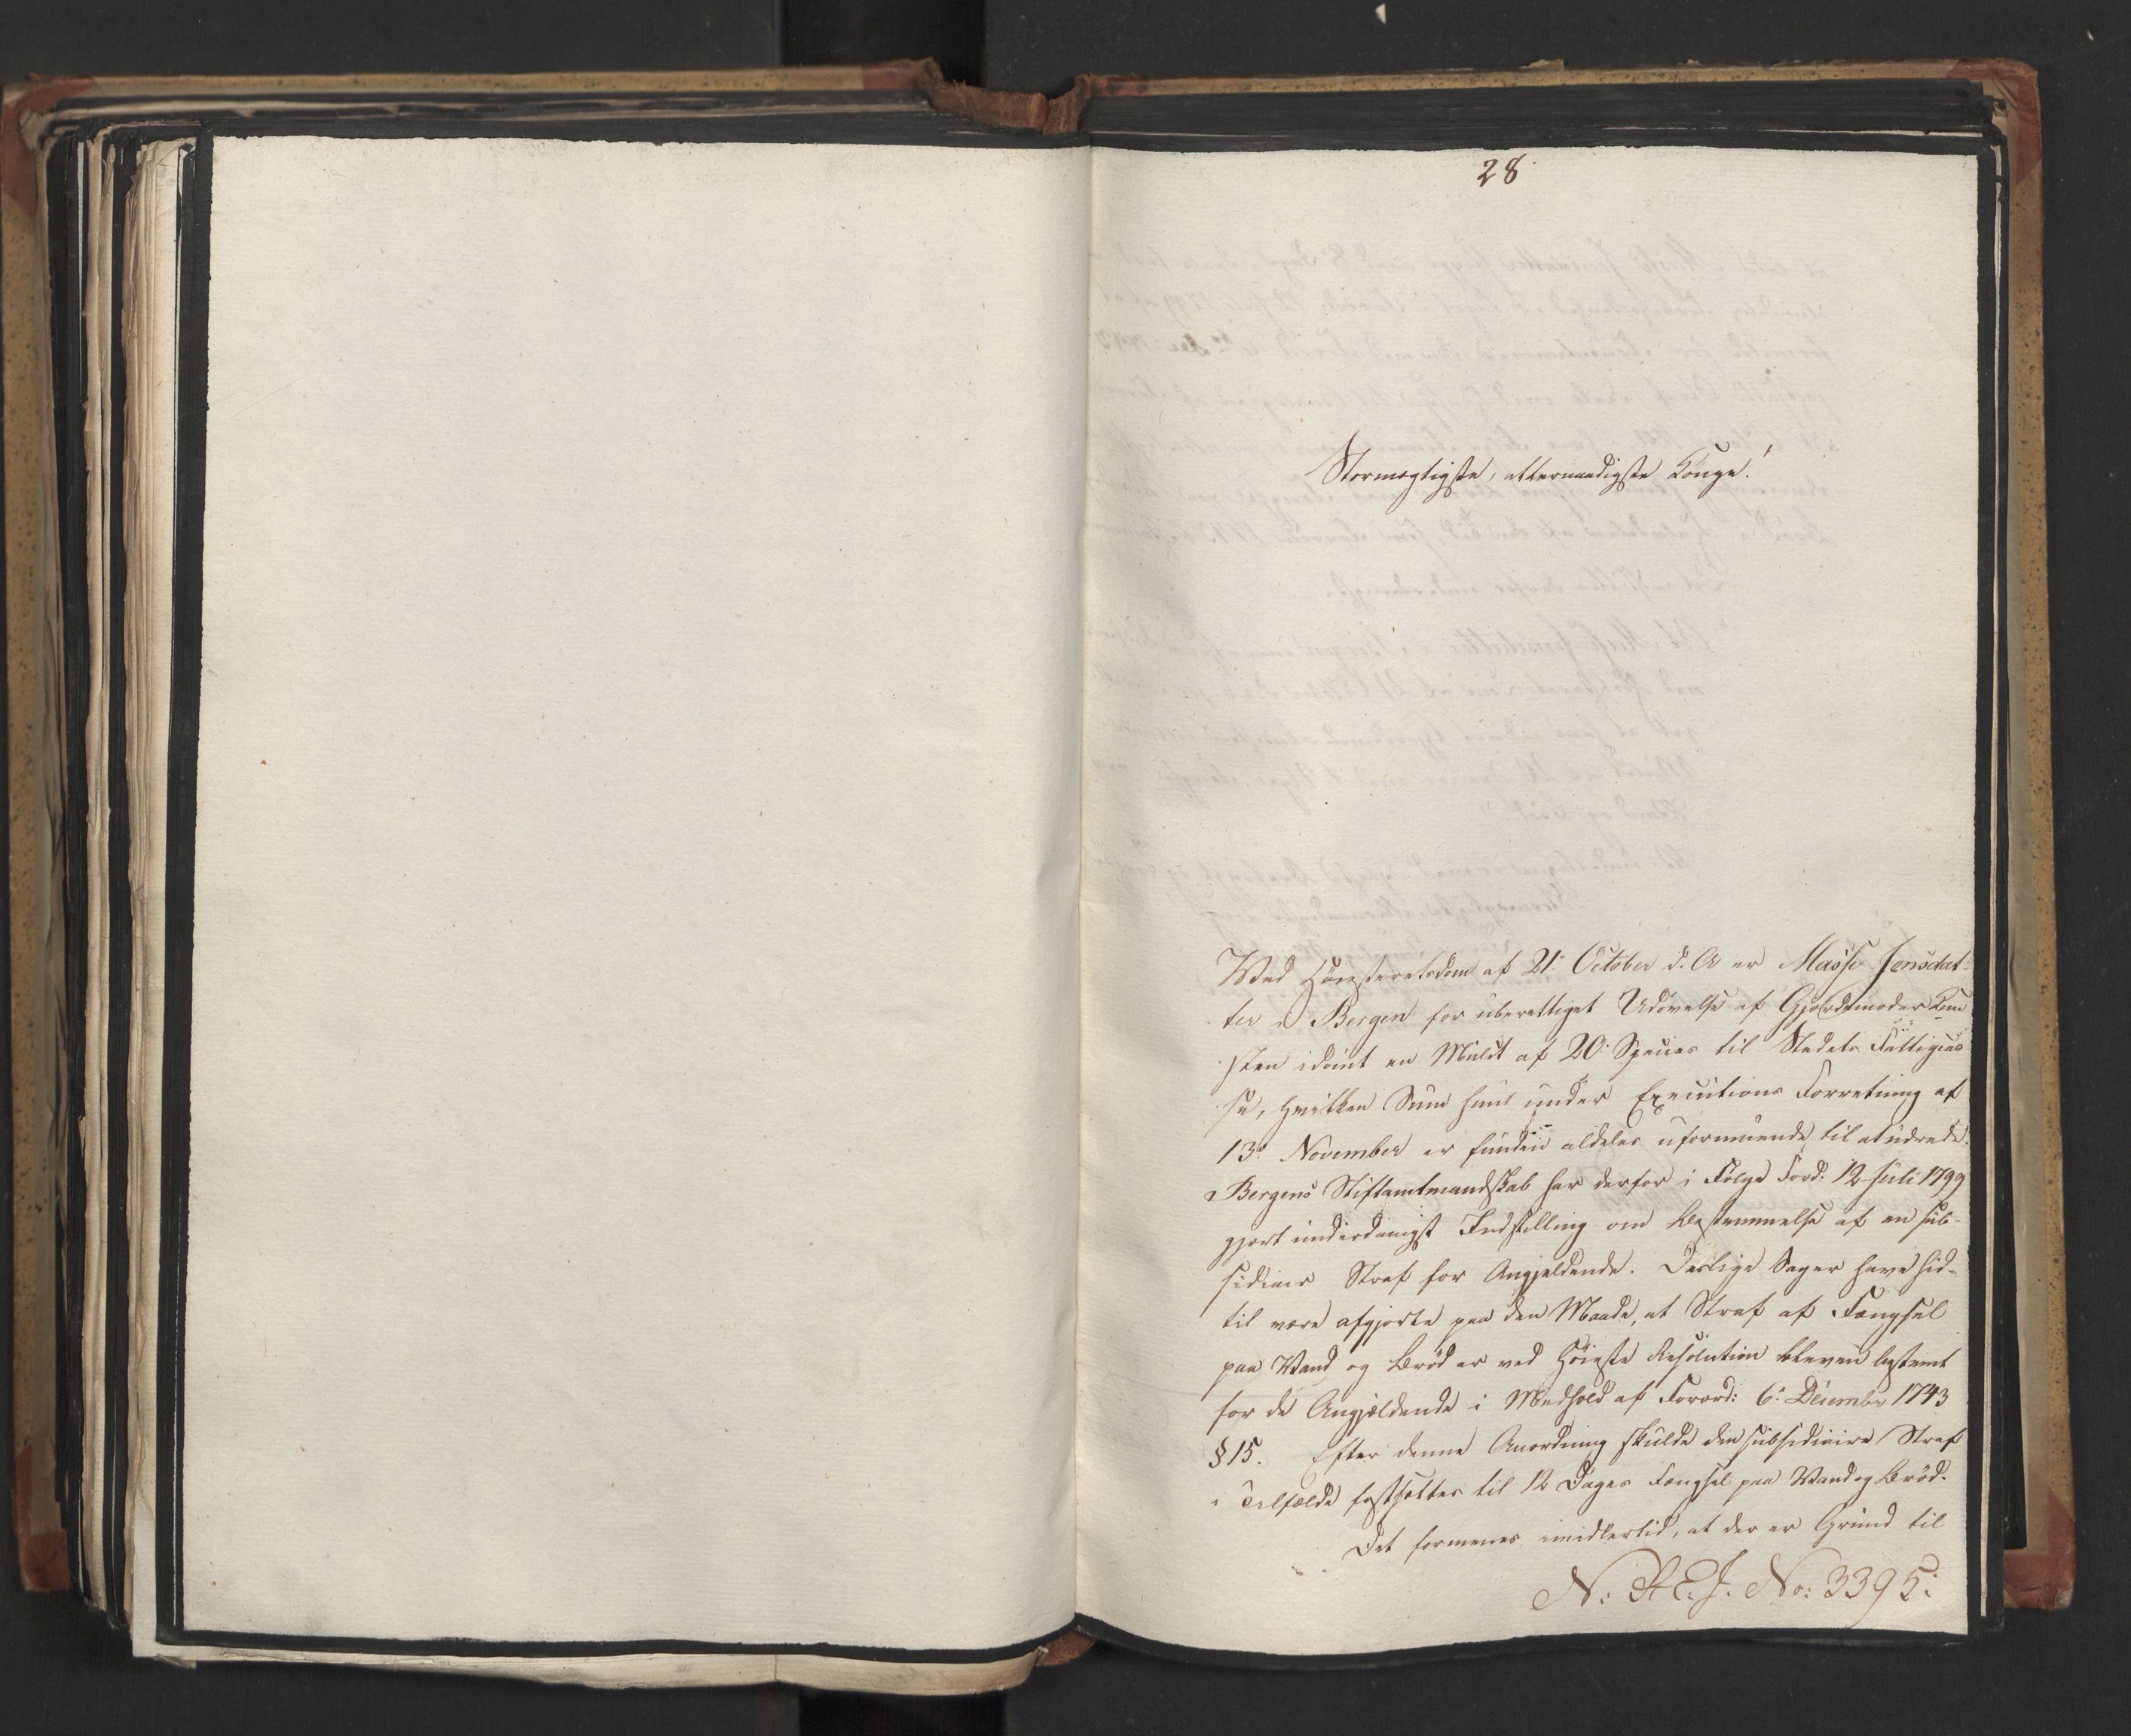 28
Stormægtigste, allernaadigste Konge!
Ved Høiesteretsdom af 21. October d. A er Massi Jensdat-
ter i Bergen for uberettiget Udøvelse af Gjordemoder Kun
sten idømt en Mulct af 20 Species til Stedets Fattigcas
se, hvilken Sum hun under Executions Forretning af
13de November er funden aldeles uformuende til at udrede.
Bergens Stiftamtmandskab har derfor i Følge Ford: 12 Juli 1799
gjort underdanigst Indstilling om Bestemmelse af en sub-
sidiair Straf for Angjeldende. Deslige Sager have hid-
til være afgjorte paa den Maade, at Straf af Fængsel
paa Vand og Brød er ved Høieste Resolution bleven bestemt
for de Angjældende i Medhold af Forord: 6. December 1743
§ 15. Efter denne Anordning skulde den subsidiaire Straf
i Tilfælde fastsættes til 12 Dages Fængsel paa Vand og Brød.
Det formenes imidlertid, at der er Grund til
N: R E. J. No: 3395: